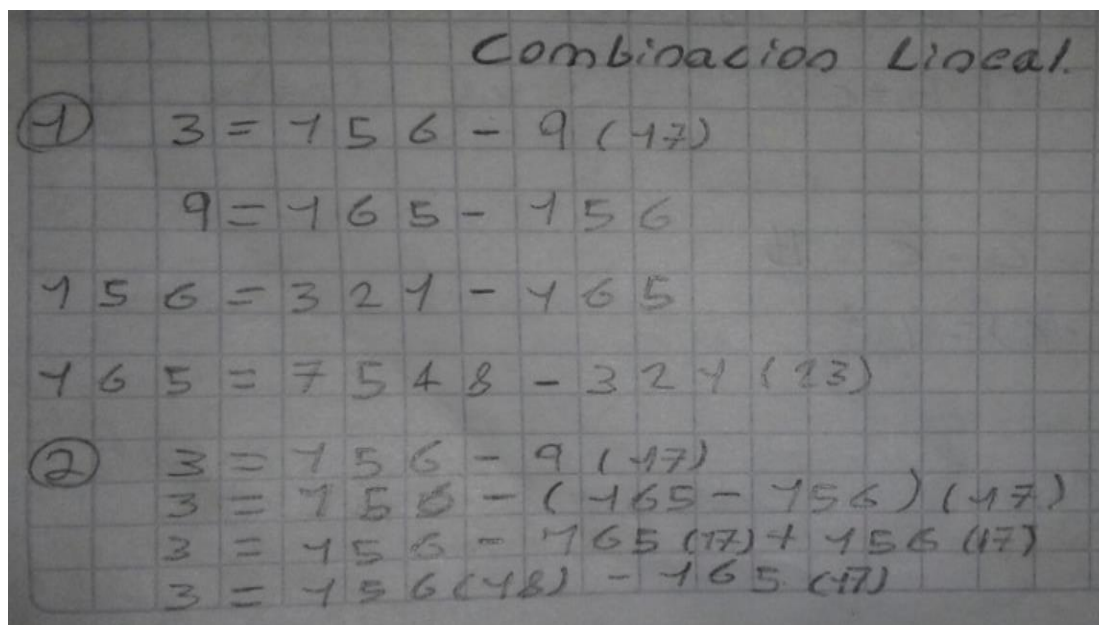 Combinacion Lineal.
① 3 = 156 - 9 (17)
9 = 165 - 156
156 = 321 - 165
165 = 7548 - 321 (23)
② 3 = 156 - 9 (17)
3 = 156 - (165 - 156) (17)
3 = 156 - 165 (17) + 156 (17)
3 = 156 (18) - 165 (17)